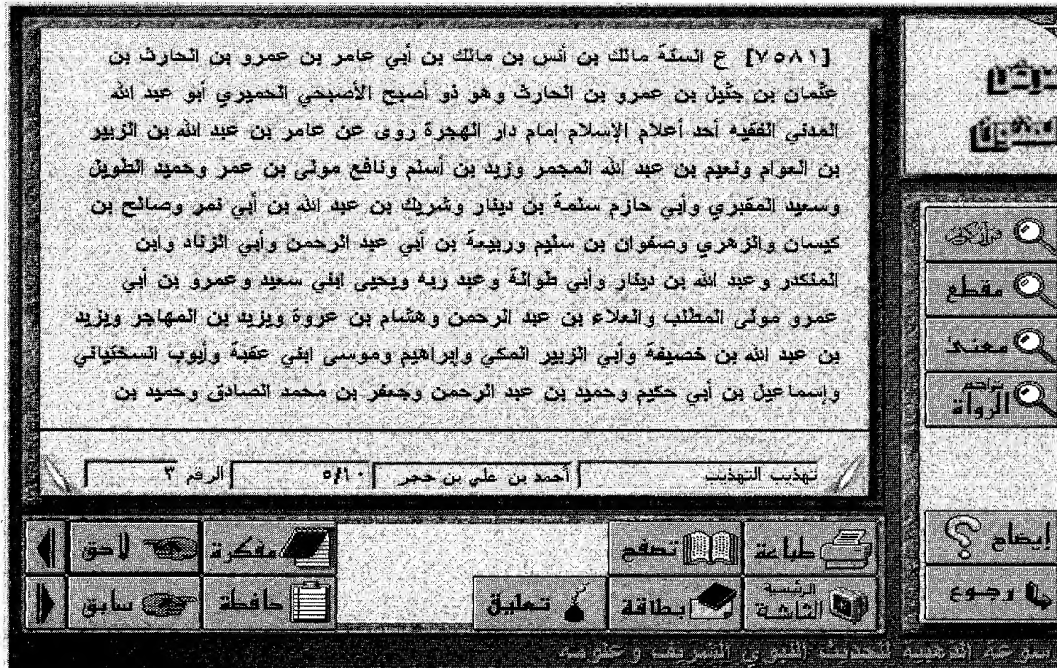 [٧٥٨١] ع الستة مالك بن أنس بن مالك بن أبي عامر بن عمرو بن الحارث بن
عثمان بن جثيل بن عمرو بن الحارث وهو ذو أصبح الأصبحي الحميري أبو عبد الله
المدني الفقيه أحد أعلام الإسلام إمام دار الهجرة روى عن عامر بن عبد الله بن الزبير
بن العوام ونعيم بن عبد الله المجمر وزيد بن أسلم ونافع مولى بن عمر وحميد الطويل
وسعيد المقبري وأبي حازم سلمة بن دينار وشريك بن عبد الله بن أبي نمر وصالح بن
كيسان والزهري وصفوان بن سليم وربيعة بن أبي عبد الرحمن وأبي الزناد وابن
المنكدر وعبد الله بن دينار وأبي طوالة وعبد ربه ويحيى ابني سعيد وعمرو بن أبي
عمرو مولى المطلب والعلاء بن عبد الرحمن وهشام بن عروة ويزيد بن المهاجر ويزيد
بن عبد الله بن خصيفة وأبي الزبير المكي وإبراهيم وموسى ابني عقبة وأيوب السختياني
وإسماعيل بن أبي حكيم وحميد بن عبد الرحمن وجعفر بن محمد الصادق وحميد بن
تهذيب التهذيب أحمد بن علي بن حجر ٥/١٠ الرقم ٣
مقطع
معنى
تراجم
الرواة
إيضاح
رجوع
طباعة تصفح مفكرة لاحق
الشاشة الرئيسة بطاقة تعليق حافظة سابق
للحديث النبوي الشريف وعلومه